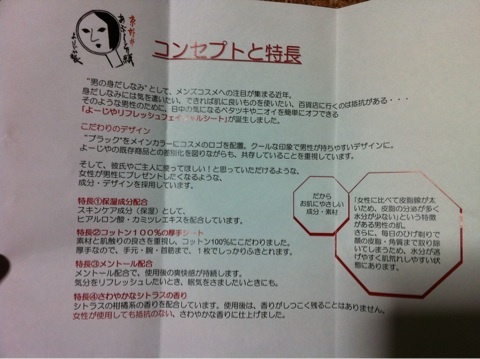 京都
よーじや
コンセプトと特長
“男の身だしなみ”として、メンズコスメへの注目が集まる近年。
身だしなみには気を遣いたい、できれば肌に良いものを使いたい、百貨店に行くのは抵抗がある・・・
そのような男性のために、日中の気になるベタツキやニオイを簡単にオフできる
「よーじやリフレッシュフェイシャルシート」が誕生しました。
こだわりのデザイン
“ブラック”をメインカラーにコスメのロゴを配置。クールな印象で男性が持ちやすいデザインに。
よーじやの既存商品との差別化を図りながらも、共存していることを重視しています。
そして、彼氏やご主人に使ってほしい！と思っていただけるような、
女性が男性にプレゼントしたくなるような、
成分・デザインを採用しています。
特長①保湿成分配合
スキンケア成分（保湿）として、
ヒアルロン酸・カミツレエキスを配合しています。
特長②コットン１００％の厚手シート
素材と肌触りの良さを重視し、コットン100％にこだわりました。
厚手なので、手元・腕・首筋まで、１枚でしっかりふきとれます。
特長③メントール配合
メントール配合で、使用後の爽快感が持続します。
気分をリフレッシュしたいとき、眠気をさましたいときにも。
特長④さわやかなシトラスの香り
シトラスの柑橘系の香りを配合しています。使用後は、香りがしつこく残ることはありません。
女性が使用しても抵抗のない、さわやかな香りに仕上げました。
だから
お肌にやさしい
成分・素材
「女性に比べて皮脂腺が太
いため、皮脂の分泌が多く
水分が少ない」という特徴
がある男性の肌。
さらに、毎日のひげ剃りで
顔の皮脂・角質まで取り除
いてしまうため、水分が逃
げやすく肌荒れしやすい状
態にあります。